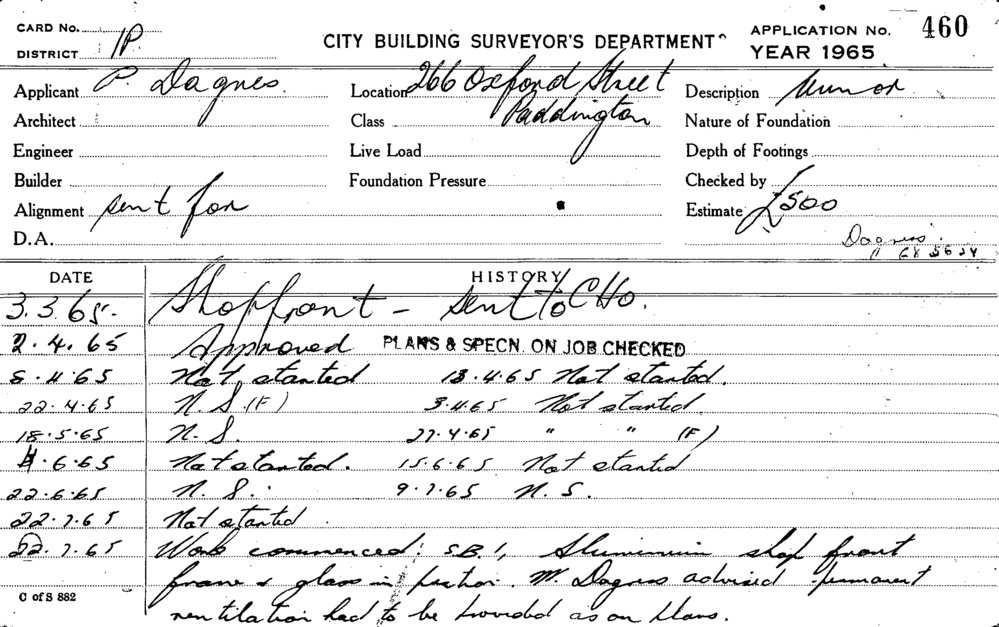 CARD No.
DISTRICT IP
CITY BUILDING SURVEYOR'S DEPARTMENT
APPLICATION No. 460
YEAR 1965
Applicant P. Dagnes. Location 266 Oxford Street Description Minor
Architect Class Paddington Nature of Foundation
Engineer Live Load Depth of Footings
Builder Foundation Pressure Checked by
Alignment sent for Estimate £500
D.A. Dagnes.
DATE HISTORY
3.3.65. Shopfront - sent to CHO.
2.4.65 Approved PLANS & SPECN. ON JOB CHECKED
8.4.65 Not started 13.4.65 Not started.
22.4.65 N.S. (F) Not started
18.5.65 N.S. 27.4.65 " " (F)
.6.65 Not started. 15.6.65 Not started
22.6.65 N.S. 9.7.65 N.S.
22.7.65 Not started
22.7.65 Work commenced: S.B.1, Aluminium shop front
frame & glass in position. Mr. Dagnes advised permanent
ventilation had to be provided as on plans.
C of S 882